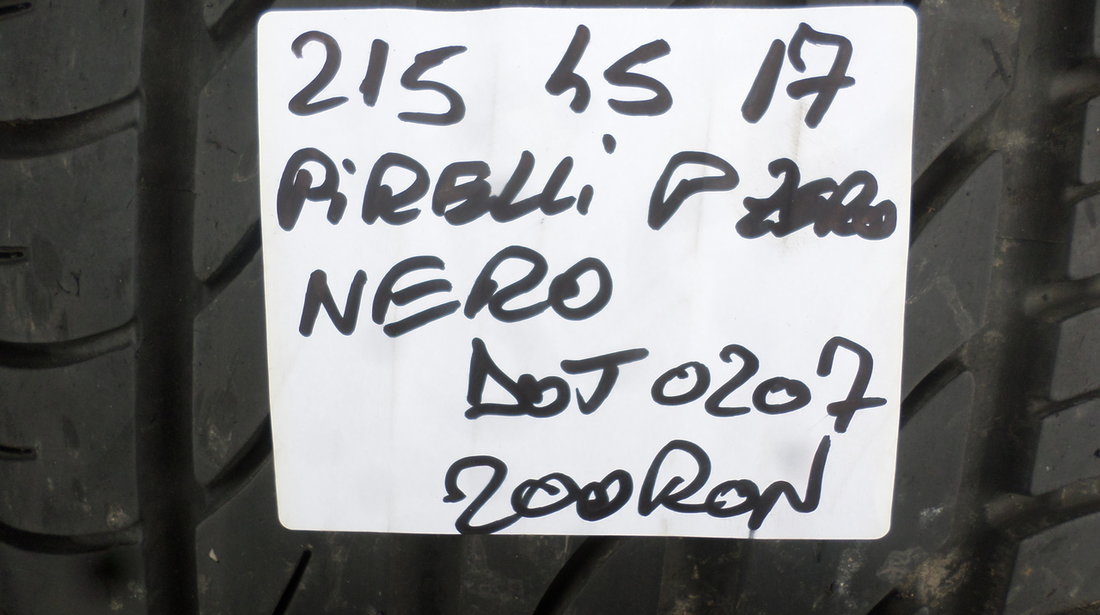 215 45 17
PiRELLi P ZERO
NERO
DOT 0207
200 RON